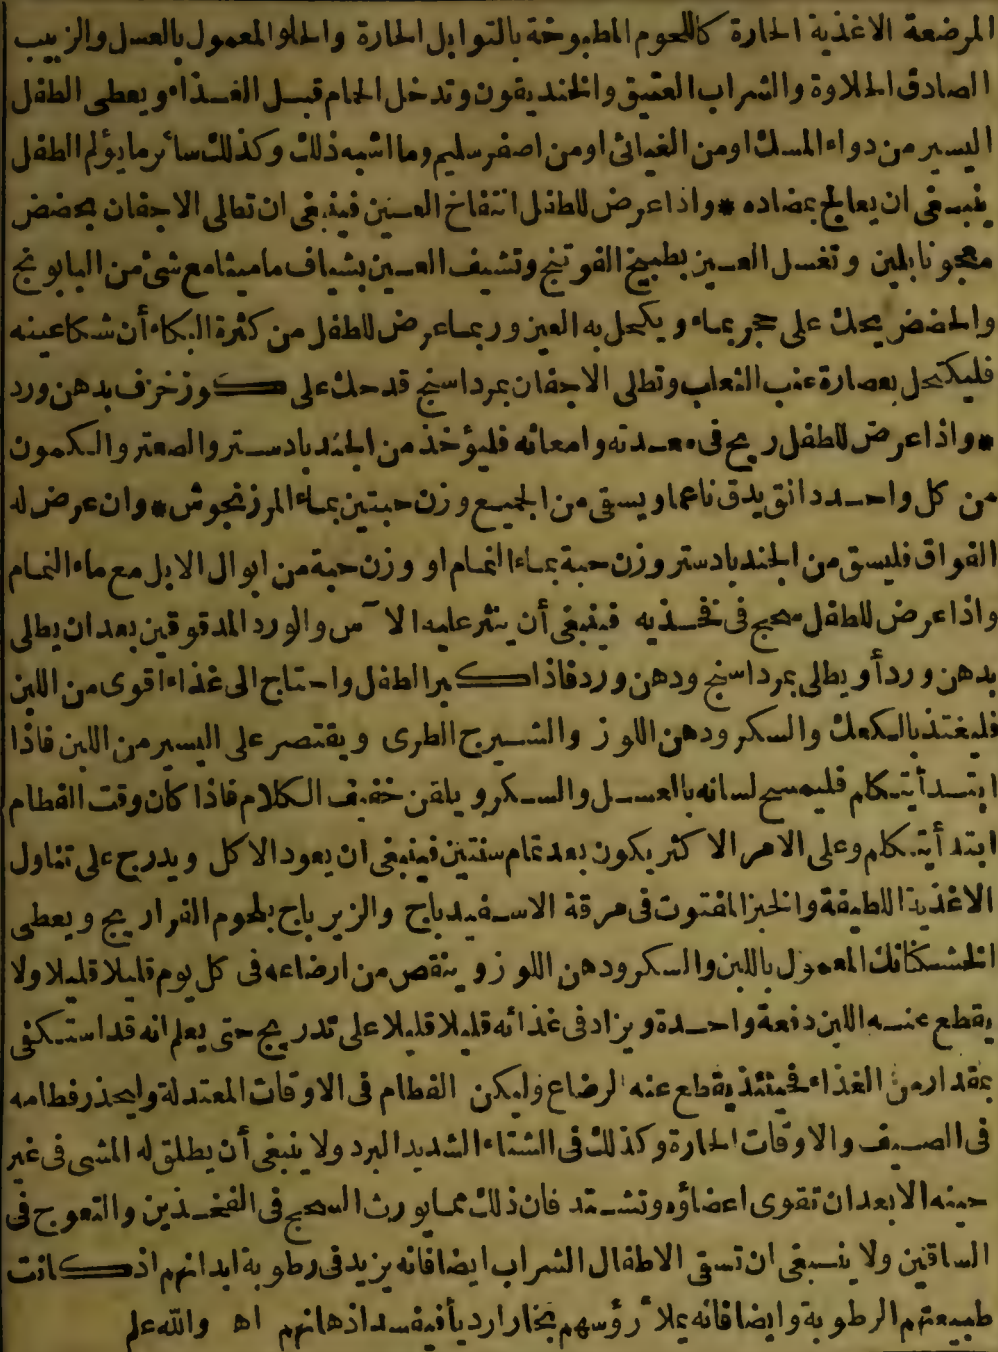 المرضعة الاغذية الحارة كاللحوم المطبوخة بالتوابل الحارة والحلو المعمول بالعسل والزبيب
الصادق الحلاوة والشراب العتيق والخنديقون وتدخل الحمام قبل الغذاء ويعطى الطفل
اليسير من دواء المسك اومن الغياثى اومن اصفر سليم وما اشبه ذلك وكذلك سائر ما يؤلم الطفل
ينبغى ان يعالج بمضاده * واذا عرض للطفل انتفاخ العينين فينبغى ان تطلى الاجفان بحضض
معجونا بلبن وتغسل العين بطبيخ الفوتنج وتشيف العين بشياف ماميثا مع شئ من البابونج
والحضض يحك على حجر بماء ويكحل به العين وربما عرض للطفل من كثرة البكاء أن شكا عينه
فليكتحل بعصارة عنب الثعلب وتطلى الاجفان بمرداسنج قد حك على كوز خزف بدهن ورد
* واذا عرض للطفل ريح فى معدته وامعائه فليؤخذ من الجندبادستر والصعتر والكمون
من كل واحد دانق يدق ناعما ويسقى من الجميع وزن حبتين بماء المرزنجوش * وان عرض له
الفواق فليسق من الجندبادستر وزن حبة بماء النمام او وزن حبة من ابوال الابل مع ماء النمام
واذا عرض للطفل سحج فى فخذيه فينبغى أن ينثر عليه الآس والورد المدقوقين بعد ان يطلى
بدهن ورد أو يطلى بمرداسنج ودهن ورد فاذا كبر الطفل واحتاج الى غذاء اقوى من اللبن
فليغتذ بالكعك والسكر ودهن اللوز والشيرج الطرى ويقتصر على اليسير من اللبن فاذا
ابتدأ يتكلم فليمسح لسانه بالعسل والسكر ويلقن خفيف الكلام فاذا كان وقت الفطام
ابتدأ يتكلم وعلى الامر الاكثر يكون بعد تمام سنتين فينبغى ان يعود الاكل ويدرج على تناول
الاغذية اللطيفة والخبز المفتوت فى مرقة الاسفيدباج والزيرباج بلحوم الفراريج ويعطى
الخشكنانك المعمول باللبن والسكر ودهن اللوز وينقص من ارضاعه فى كل يوم قليلا قليلا ولا
يقطع عنه اللبن دفعة واحدة ويزاد فى غذائه قليلا قليلا على تدريج حتى يعلم انه قد استكفى
بمقدار من الغذاء فحينئذ يقطع عنه الرضاع وليكن الفطام فى الاوقات المعتدلة وليحذر فطامه
فى الصيف والاوقات الحارة وكذلك فى الشتاء الشديد البرد ولا ينبغى أن يطلق له المشى فى غير
حينه الا بعد ان تقوى اعضاؤه وتشتد فان ذلك مما يورث السحج فى الفخذين والتعوج فى
الساقين ولا ينبغى ان تسقى الاطفال الشراب ايضا فانه يزيد فى رطوبة ابدانهم اذ كانت
طبيعتهم الرطوبة وايضا فانه يملأ رؤسهم بخارا رديأ فيفسد اذهانهم اه والله علم